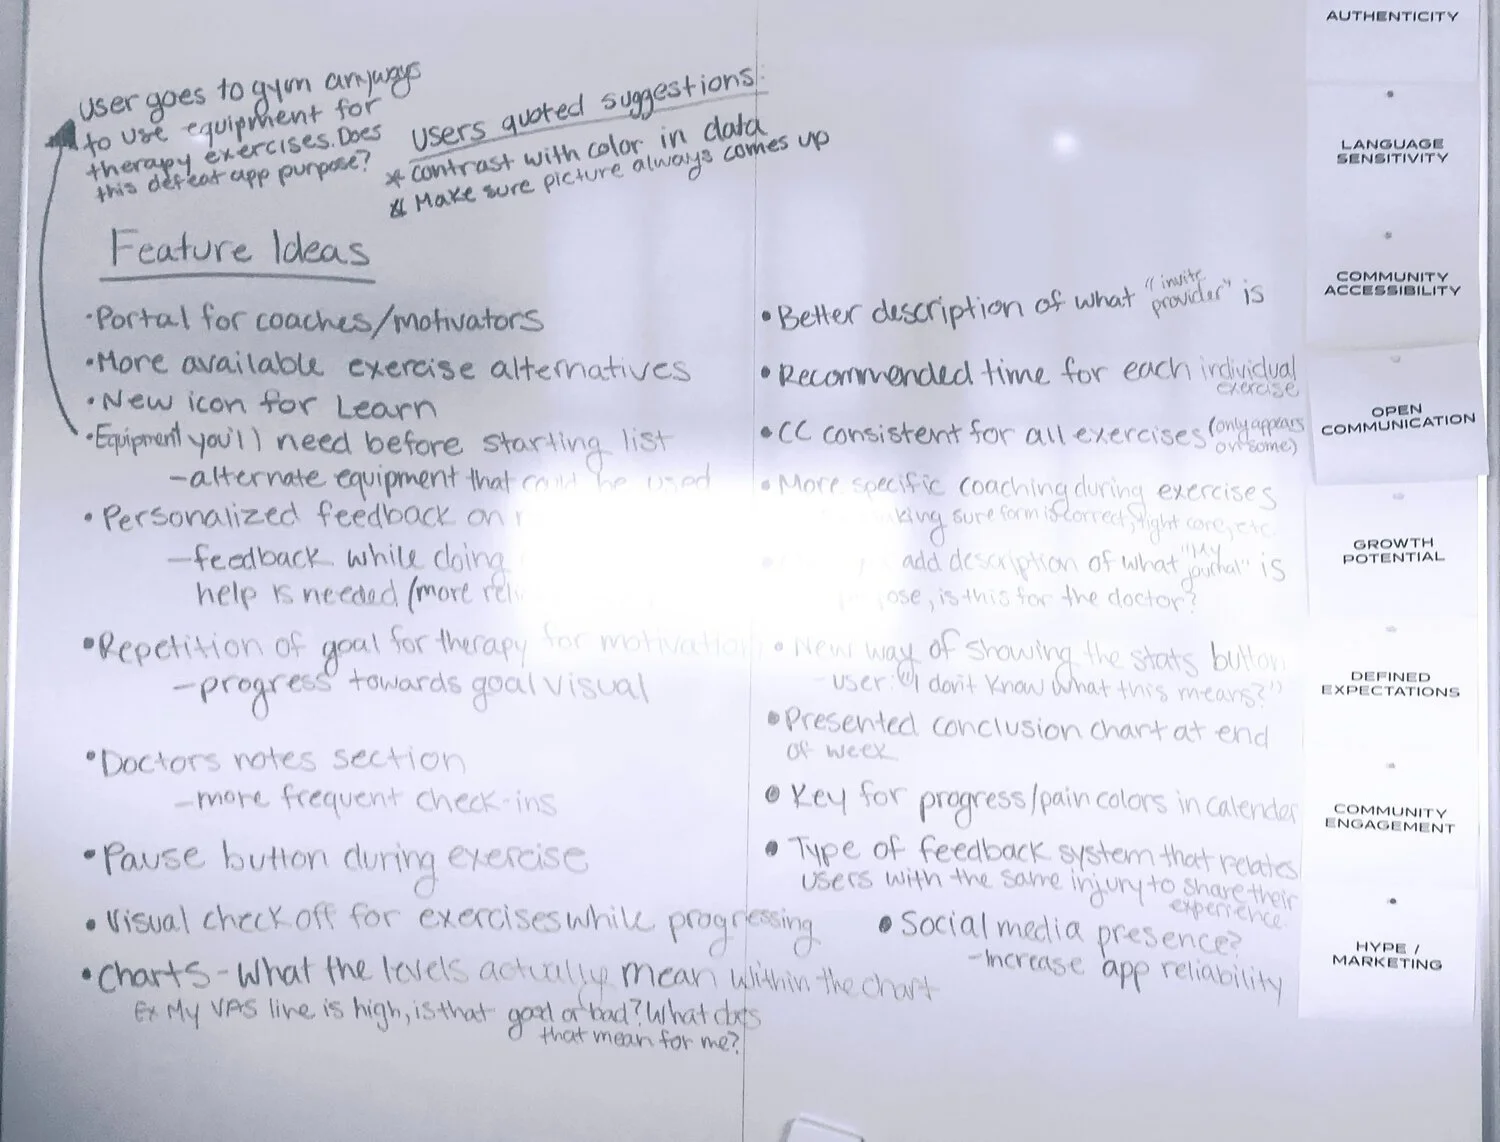 User goes to gym anyways
to use equipment for
therapy exercises. Does
this defeat app purpose?
Users quoted suggestions:
* contrast with color in data
* Make sure picture always comes up
Feature Ideas
•Portal for coaches/motivators
•More available exercise alternatives
•New icon for Learn
•Equipment you'll need before starting list
-alternate equipment that could be used
•Personalized feedback on
-feedback while doing
help is needed (more
•Repetition of goal for therapy for motivation
-progress towards goal visual
•Doctors notes section
-more frequent check-ins
•Pause button during exercise
•Visual check off for exercises while progressing
•Charts - What the levels actually mean within the chart
Ex My VAS line is high, is that good or bad? What does
that mean for me?
•Better description of what "invite
provider" is
•Recommended time for each individual
exercise
•CC consistent for all exercises (only appears
on some)
•More specific coaching during exercises
sure form is correct, tight core, etc.
add description of what "My
journal" is
is this for the doctor?
•New way of showing the stats button
-user: "I don't know what this means?"
•Presented conclusion chart at end
of week
•Key for progress/pain colors in calender
•Type of feedback system that relates
users with the same injury to share their
experience.
•Social media presence?
-Increase app reliability
AUTHENTICITY
LANGUAGE
SENSITIVITY
COMMUNITY
ACCESSIBILITY
OPEN
COMMUNICATION
GROWTH
POTENTIAL
DEFINED
EXPECTATIONS
COMMUNITY
ENGAGEMENT
HYPE /
MARKETING